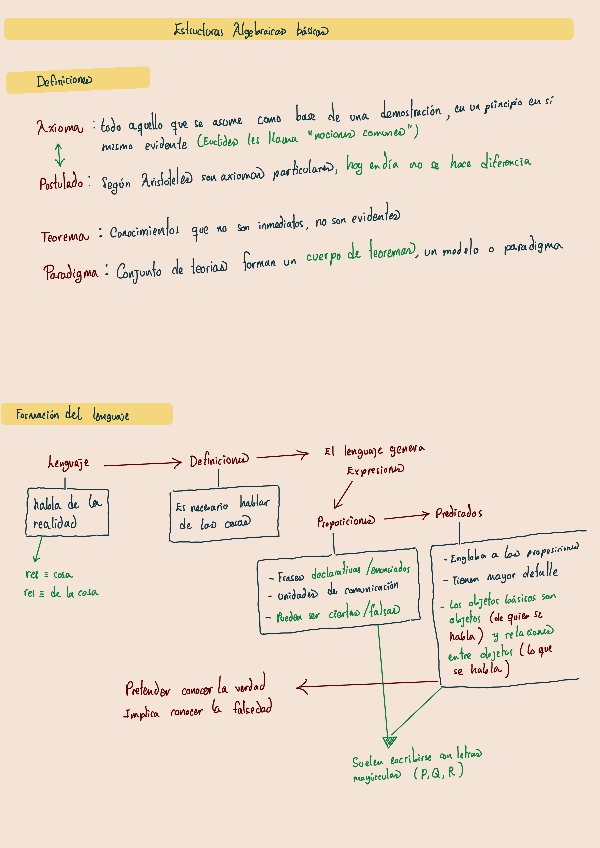 Estructuras Algebraicas básicas
Definiciones
Axioma : todo aquello que se asume como base de una demostración, en un principio en sí
mismo evidente (Euclides les llama "nociones comunes")
Postulado : Según Aristóteles son axiomas particulares, hoy en día no se hace diferencia
Teorema : Conocimientos que no son inmediatos, no son evidentes
Paradigma : Conjunto de teorias forman un cuerpo de teoremas, un modelo o paradigma
Formación del lenguaje
Lenguaje
Definiciones
El lenguaje genera
Expresiones
habla de la
realidad
Es necesario hablar
de las cosas
Proposiciones
Predicados
res ≡ cosa
rei ≡ de la cosa
- Frases declarativas / enunciados
- Unidades de comunicación
- Pueden ser ciertas / falsas
- Engloba a las proposiciones
- Tienen mayor detalle
- Los objetos básicos son
objetos (de quien se
habla) y relaciones
entre objetos (lo que
se habla)
Pretender conocer la verdad
Implica conocer la falsedad
Suelen escribirse con letras
mayúsculas (P, Q, R)